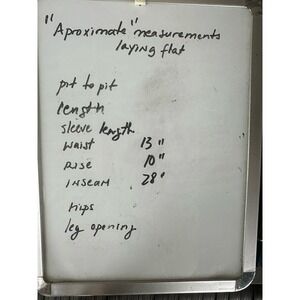 "Aproximate" measurements
laying flat
pit to pit
length
sleeve length
waist 13"
Rise 10"
inseam 28"
hips
leg opening